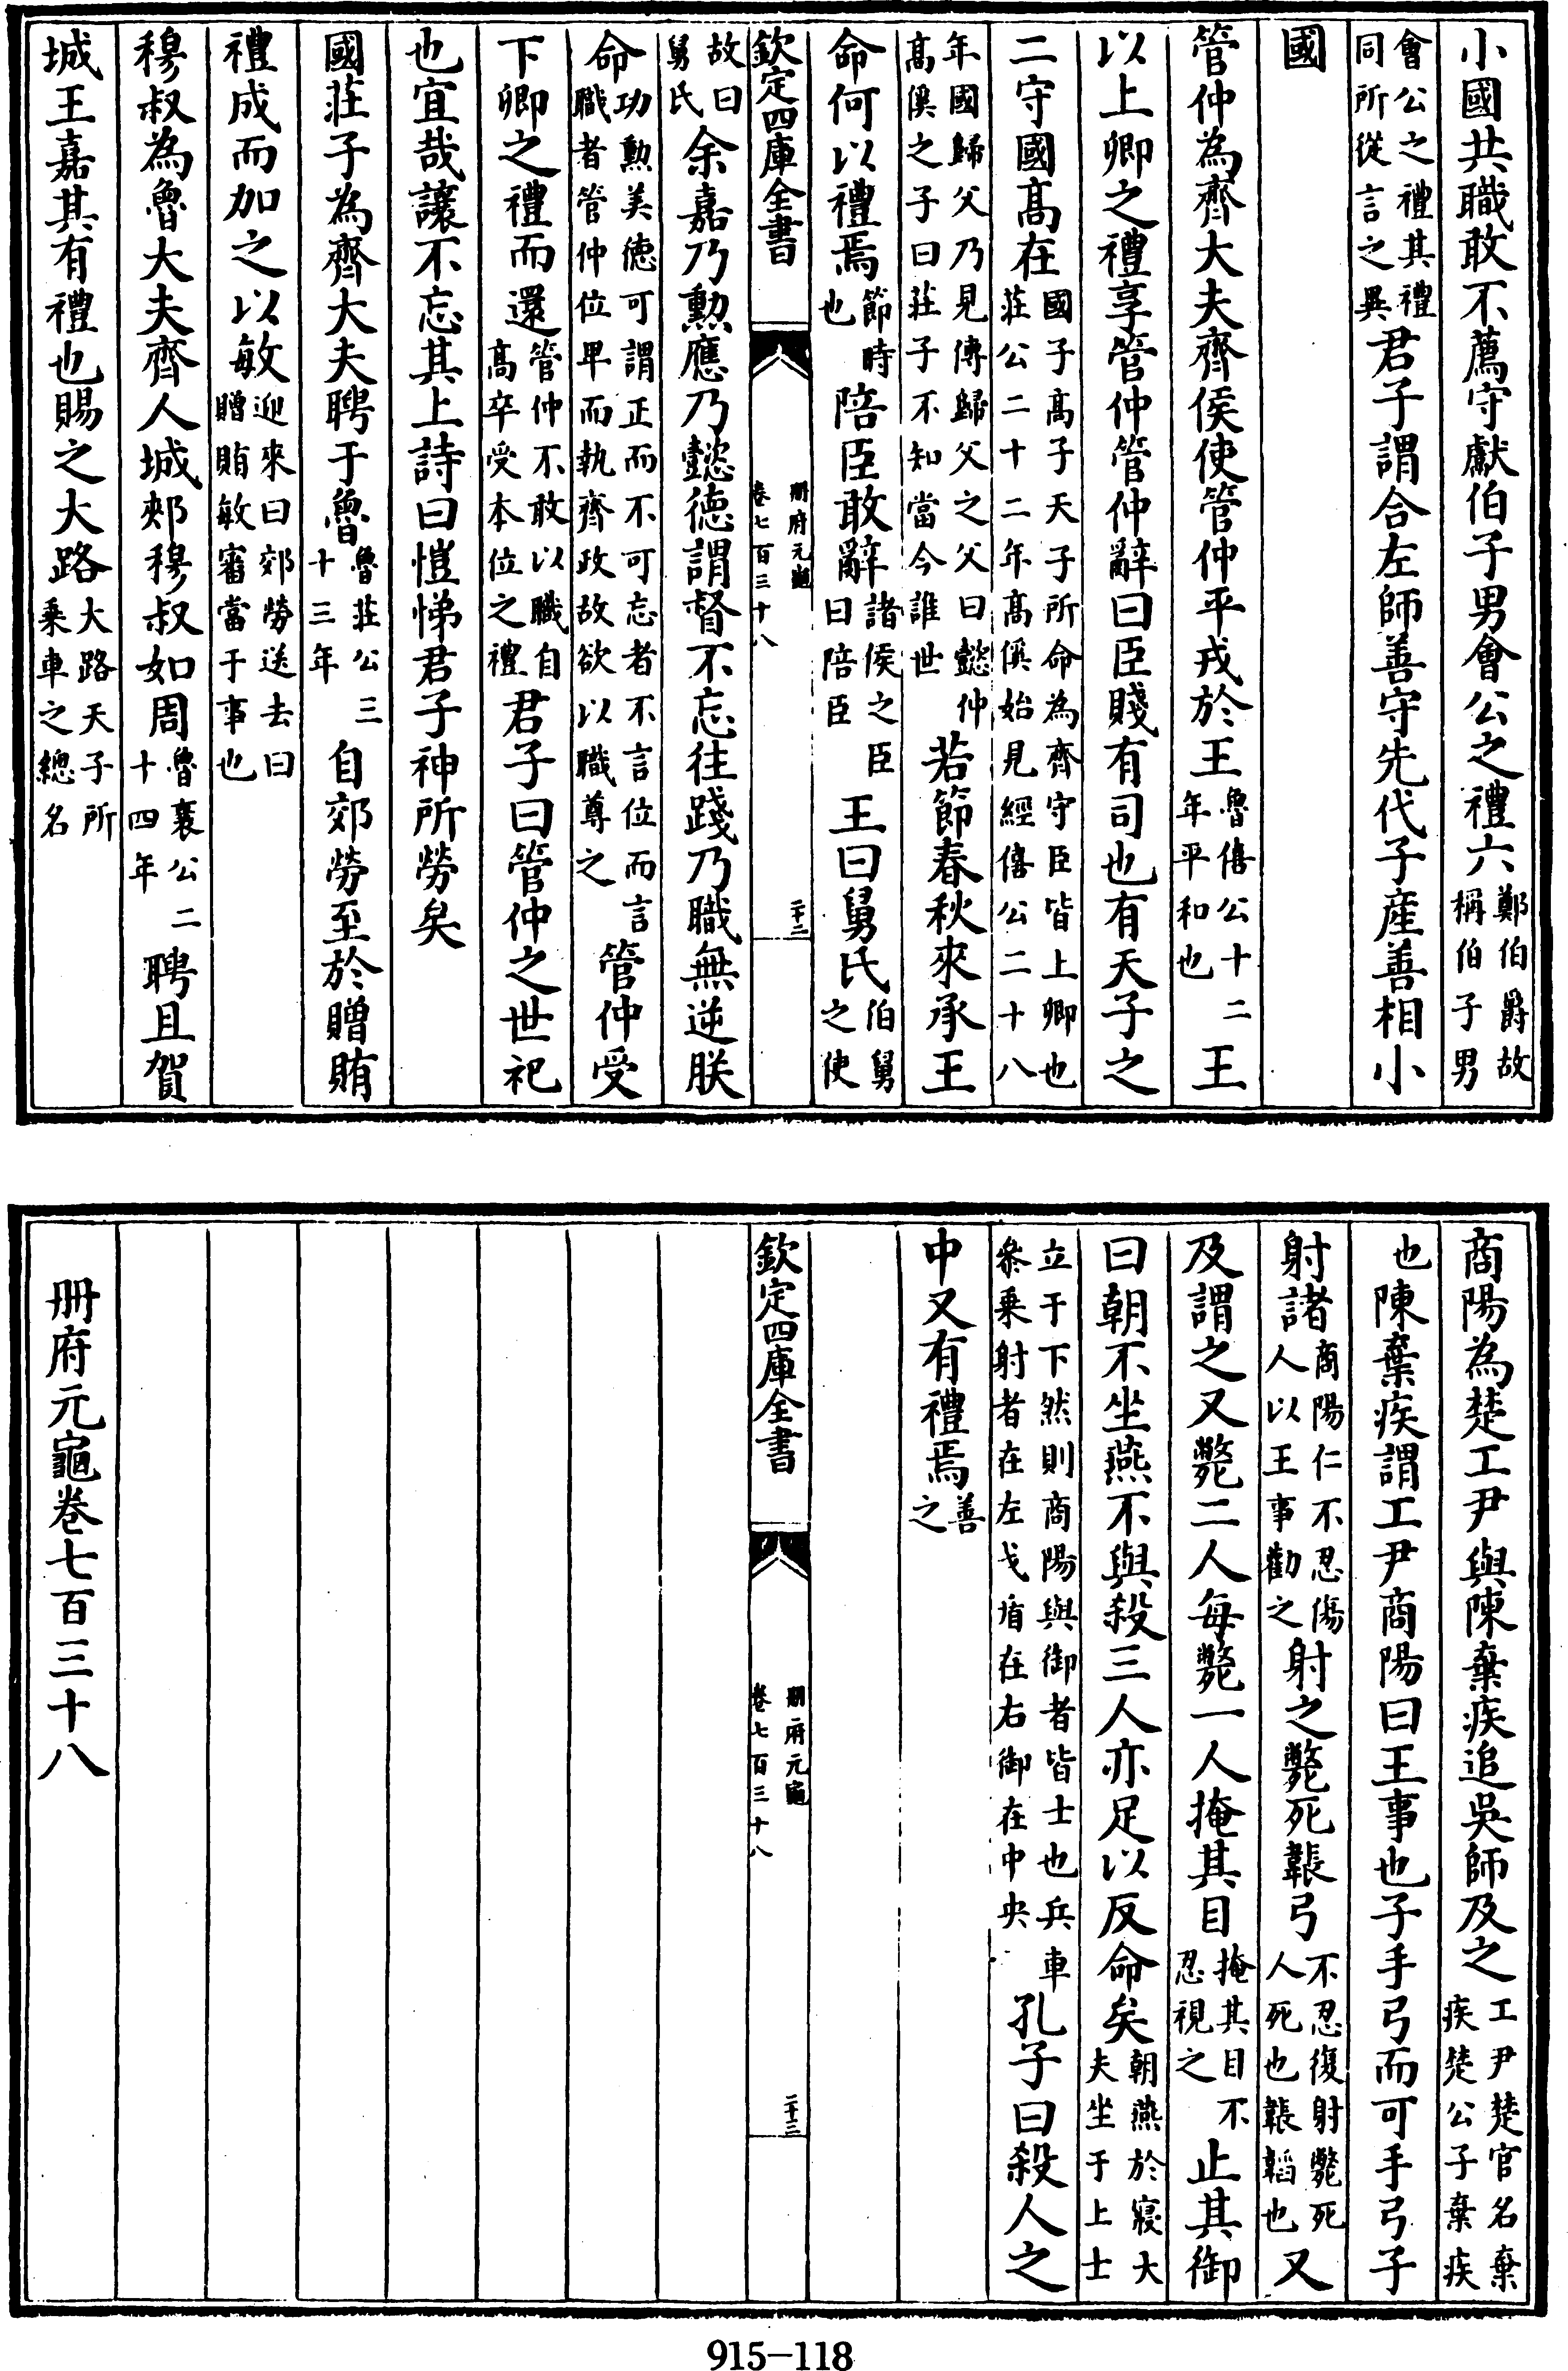 小國共職敢不薦守獻伯子男會公之禮六鄭伯爵故稱伯子男
會公之禮其禮同所從言之異君子謂合左師善守先代子産善相小
國
管仲為齊大夫齊侯使管仲平戎於王魯僖公十二年平和也王
以上卿之禮享管仲管仲辭曰臣賤有司也有天子之
二守國高在國子高子天子所命為齊守臣皆上卿也莊公二十二年高傒始見經僖公二十八
年國歸父乃見傳歸父之父曰懿仲高傒之子曰莊子不知當今誰世若節春秋來承王
命何以禮焉節時也陪臣敢辭諸侯之臣曰陪臣王曰舅氏伯舅之使
欽定四庫全書 冊府元龜 卷七百三十八 二十二
故曰舅氏余嘉乃勲應乃懿德謂督不忘往踐乃職無逆朕
命功勲美德可謂正而不可忘者不言位而言職者管仲位卑而執齊政故欲以職尊之管仲受
下卿之禮而還管仲不敢以職自高卒受本位之禮君子曰管仲之世祀
也宜哉讓不忘其上詩曰愷悌君子神所勞矣
國莊子為齊大夫聘于魯魯莊公三十三年自郊勞至於贈賄
禮成而加之以敏迎來曰郊勞送去曰贈賄敏審當于事也
穆叔為魯大夫齊人城郟穆叔如周魯襄公二十四年聘且賀
城王嘉其有禮也賜之大路大路天子所乗車之總名
商陽為楚工尹與陳棄疾追吳師及之工尹楚官名棄疾楚公子棄疾
也陳棄疾謂工尹商陽曰王事也子手弓而可手弓子
射諸商陽仁不忍傷人以王事勸之射之斃死韔弓不忍復射斃死人死也韔韜也又
及謂之又斃二人每斃一人掩其目掩其目不忍視之止其御
曰朝不坐燕不與殺三人亦足以反命矣朝燕於寢大夫坐于上士
立于下然則商陽與御者皆士也兵車叅乗射者在左戈盾在右御在中央孔子曰殺人之
中又有禮焉善之
欽定四庫全書 冊府元龜 卷七百三十八 二十三
冊府元龜卷七百三十八
915-118